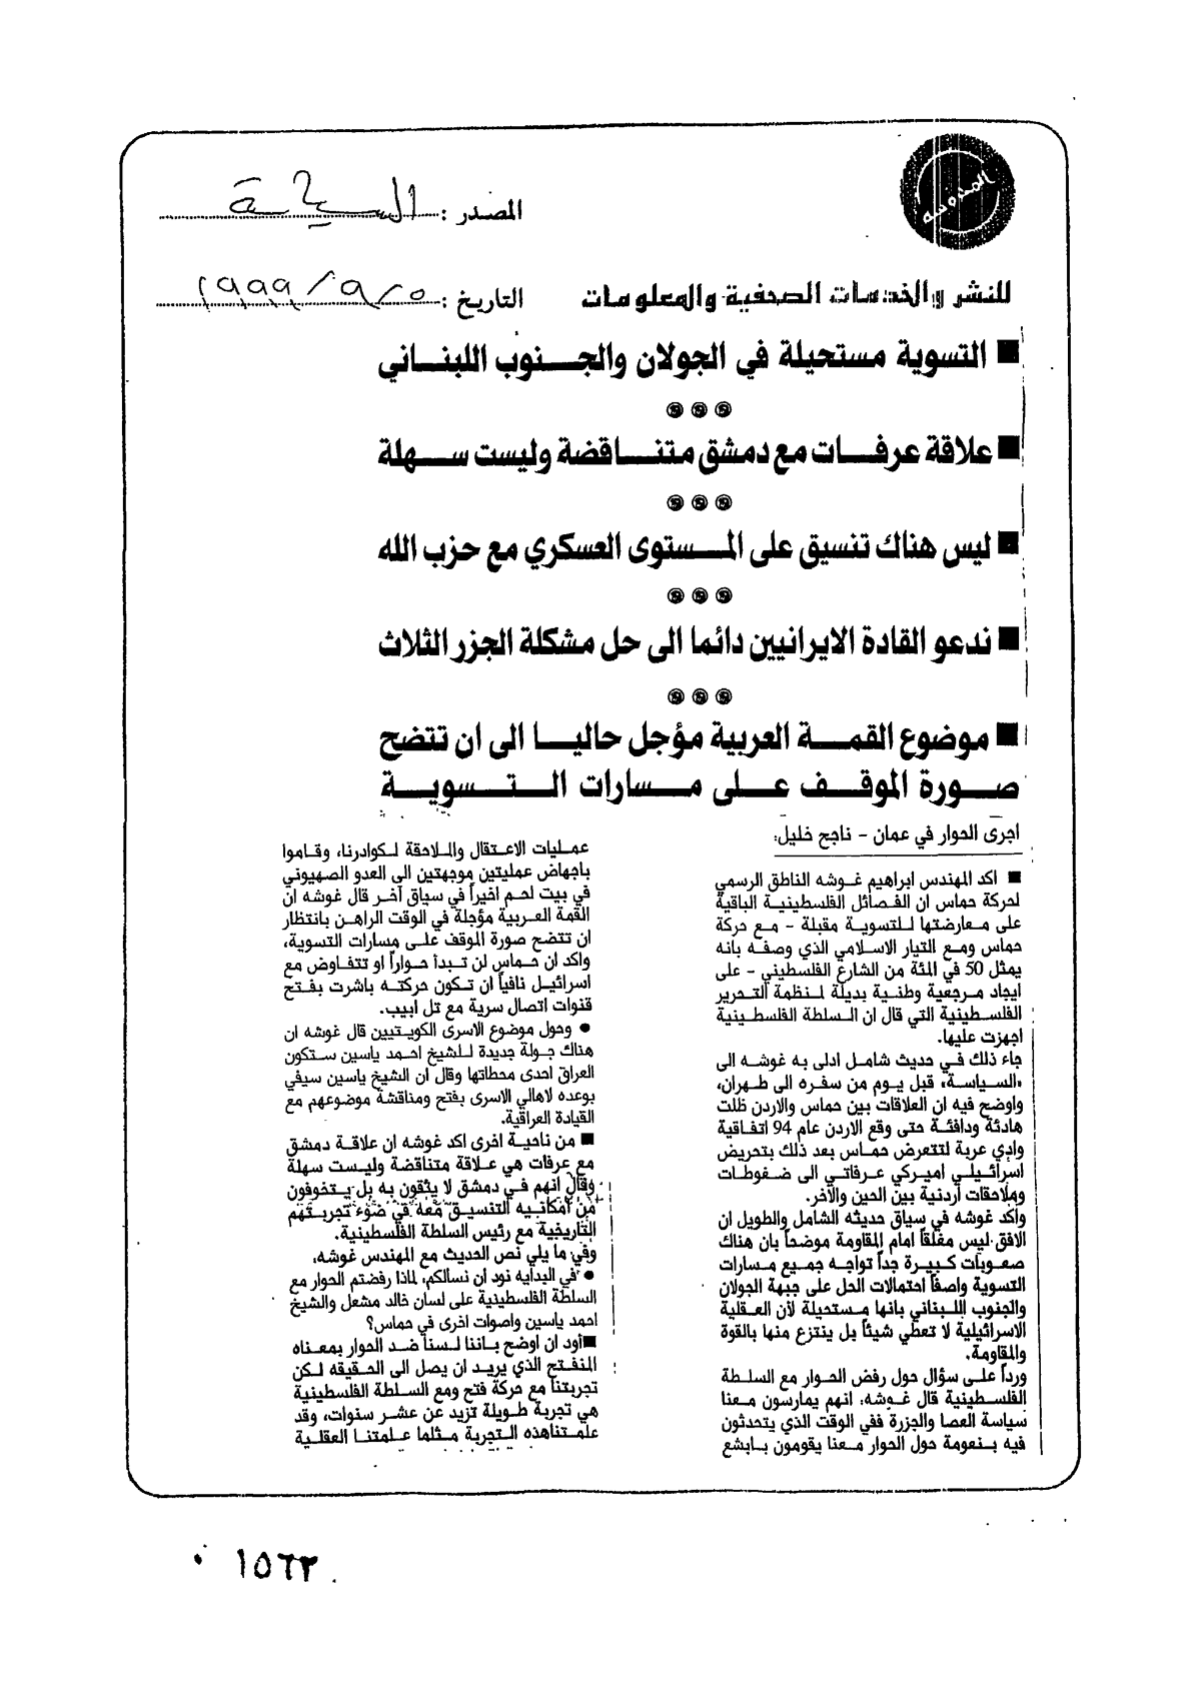 المحروسة
المصدر : السياسة
للنشر والخدمات الصحفية والمعلومات
التاريخ : ٥ / ٩ / ١٩٩٩
■ التسوية مستحيلة في الجولان والجنوب اللبناني
■ علاقة عرفات مع دمشق متناقضة وليست سهلة
■ ليس هناك تنسيق على المستوى العسكري مع حزب الله
■ ندعو القادة الايرانيين دائما الى حل مشكلة الجزر الثلاث
■ موضوع القمة العربية مؤجل حاليا الى ان تتضح
صورة الموقف على مسارات التسوية
اجرى الحوار في عمان - ناجح خليل:
■ اكد المهندس ابراهيم غوشه الناطق الرسمي
لحركة حماس ان الفصائل الفلسطينية الباقية
على معارضتها للتسوية مقبلة - مع حركة
حماس ومع التيار الاسلامي الذي وصفه بانه
يمثل 50 في المئة من الشارع الفلسطيني - على
ايجاد مرجعية وطنية بديلة لمنظمة التحرير
الفلسطينية التي قال ان السلطة الفلسطينية
اجهزت عليها.
جاء ذلك في حديث شامل ادلى به غوشه الى
«السياسة» قبل يوم من سفره الى طهران،
واوضح فيه ان العلاقات بين حماس والاردن ظلت
هادئة ودافئة حتى وقع الاردن عام 94 اتفاقية
وادي عربة لتتعرض حماس بعد ذلك بتحريض
اسرائيلي اميركي عرفاتي الى ضغوطات
وملاحقات أردنية بين الحين والآخر.
وأكد غوشه في سياق حديثه الشامل والطويل ان
الافق ليس مغلقاً امام المقاومة موضحاً بان هناك
صعوبات كبيرة جداً تواجه جميع مسارات
التسوية واصفاً احتمالات الحل على جبهة الجولان
والجنوب اللبناني بانها مستحيلة لأن العقلية
الاسرائيلية لا تعطي شيئاً بل ينتزع منها بالقوة
والمقاومة.
ورداً على سؤال حول رفض الحوار مع السلطة
الفلسطينية قال غوشه: انهم يمارسون معنا
سياسة العصا والجزرة ففي الوقت الذي يتحدثون
فيه بنعومة حول الحوار معنا يقومون بابشع
عمليات الاعتقال والملاحقة لكوادرنا، وقاموا
باجهاض عمليتين موجهتين الى العدو الصهيوني
في بيت لحم اخيراً في سياق آخر قال غوشه ان
القمة العربية مؤجلة في الوقت الراهن بانتظار
ان تتضح صورة الموقف على مسارات التسوية،
واكد ان حماس لن تبدأ حواراً او تتفاوض مع
اسرائيل نافياً ان تكون حركته باشرت بفتح
قنوات اتصال سرية مع تل ابيب.
● وحول موضوع الاسرى الكويتيين قال غوشه ان
هناك جولة جديدة للشيخ احمد ياسين ستكون
العراق احدى محطاتها وقال ان الشيخ ياسين سيفي
بوعده لاهالي الاسرى بفتح ومناقشة موضوعهم مع
القيادة العراقية.
■ من ناحية اخرى اكد غوشه ان علاقة دمشق
مع عرفات هي علاقة متناقضة وليست سهلة
وقال انهم في دمشق لا يثقون به بل يتخوفون
من امكانيه التنسيق معه في ضوء تجربتهم
التاريخية مع رئيس السلطة الفلسطينية.
وفي ما يلي نص الحديث مع المهندس غوشه،
● في البدايه نود ان نسألكم، لماذا رفضتم الحوار مع
السلطة الفلسطينية على لسان خالد مشعل والشيخ
احمد ياسين واصوات اخرى في حماس؟
■ أود ان اوضح باننا لسنا ضد الحوار بمعناه
المنفتح الذي يريد ان يصل الى الحقيقه لكن
تجربتنا مع حركة فتح ومع السلطة الفلسطينية
هي تجربة طويلة تزيد عن عشر سنوات، وقد
علمتناهذه التجربة مثلما علمتنا العقلية
١٥٦٣